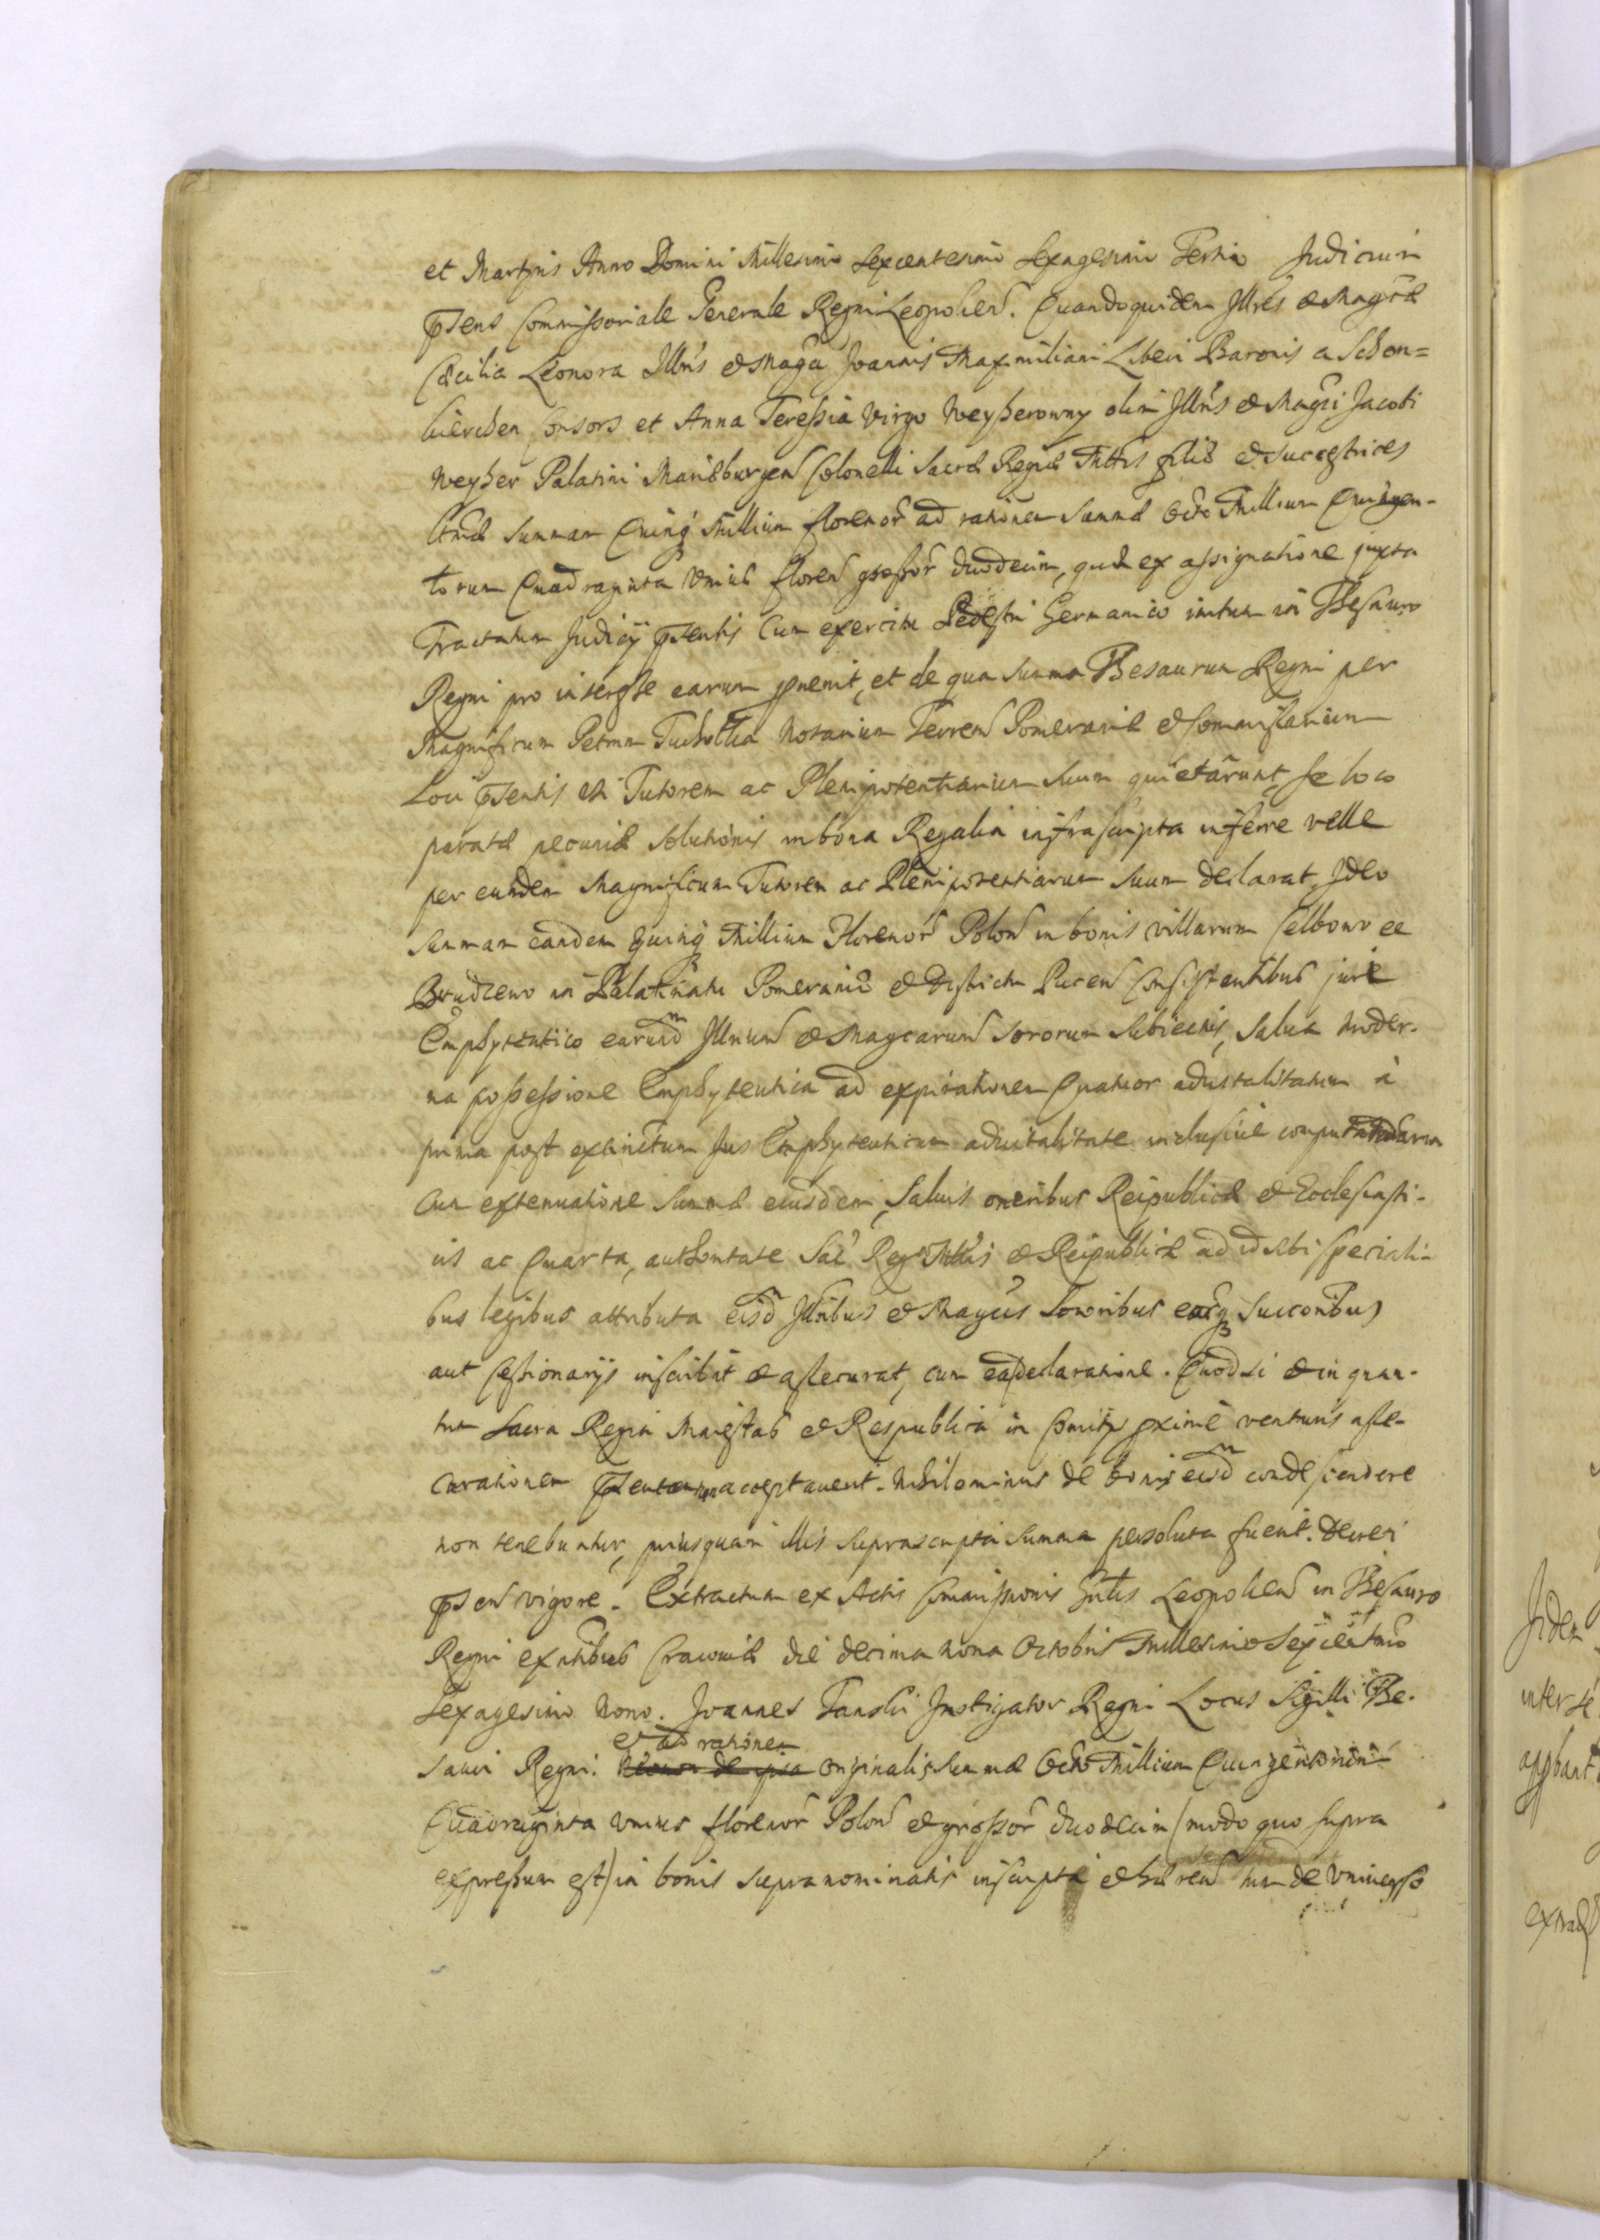 et Martyris Anno Domini Millesimo Sexcentesimo Sexagesimo Tertio Judicium
pñsens Commissoriale Generale Regni Leopolien. Quandoquidem Illres et Magcæ
Cæcilia Leonora Illris et Magci Joannis Maxmiliani Liberi Baronis a Schon=
Consors et Anna Teressia Virgo Weyherowny olim Illris et Magci Jacobi
Weyher Palatini Mariæburgen Colonelli Sacræ Regiæ Mttis filiæ et Successtrices
summam Quinq Millium florenor ad rationem Summæ Octo Millium Quingen-
torum Quadraginta Unius floren grossor duodecim, quæ ex assignatione juxta
Tractatum Judicij pñsentis Cum exercitu Pedestri Germanico initum in Thesauro
Regni pro interesse earum pvenit, et de qua summa Thesaurum Regni per
Magnificum Petrum Tucholka Notarium Terren Pomeraniæ et Commissarium
Loci pñsentis et Tutorem ac Plenipotentiarium suum quietarunt, se loco
paratæ pecuniæ solutionis in bona Regalia infrascripta inferre velle
per eundem Magnificum Tutorem ac Plenipotentiarium suum declarat, Ideo
summam eandem Quinq Millium Florenor Polon in bonis villarum Celbowo et
Brudzewo in Palatinatu Pomeraniæ et Districtu Pucen Consistentibus jure
Emphyteutico earund Illrium et Magcarum Sororum Subiectis, Salva moder-
na possessione Emphyteutica ad expirationem Quatuor advitalitatum à
prima post extinctum Jus Emphyteuticum advitalitate inclusive computandarum
Cum extenuatione Summæ eiusdem, Salvis oneribus Reipublicæ et Ecclesiasti-
cis ac Quarta, authoritate Sac Reg Mttis et Reipublicæ ad id sibi speciali-
bus legibus attributa eisd Illribus et Magcis Sororibus earq Succoribus
aut Cessionarijs inscribit et assecurat, cum ea declaratione. Quod si et in quan-
tum Sacra Regia Maiestas et Respublica in Comitijs pxime venturis asse-
curationem pñsentem non acceptaverit. Nihilominus de bonis eisd condescendere
non tenebuntur, priusquam illis suprascripta summa persoluta fuerit. Decreti
pñsen vigore. Extractum ex Actis Commissionis Gnlis Leopolien in Thesauro
Regni exñtibus Cracoviæ die decima nona Octobris Millesimo Sexcentmo
Sexagesimo Nono. Joannes Tanski Instigator Regni Locus Sigilli The-
et ad rationem
sauri Regni. originalis summæ Octo Millium Quingentorum
Quadraginta Unius florenor Polon et grossor duodecim (modo quo supra
expressum est) in bonis supranominatis inscripta et de Universo